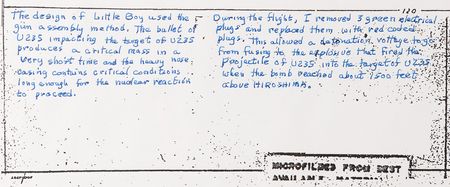 The design of Little Boy used the
gun assembly method. The bullet of
U235 impacting the target of U235
produces a critical mass in a
very short time and the heavy nose
casing contains critical conditions
long enough for the nuclear reaction
to proceed.
120
During the flight, I removed 3 green electrical
plugs and replaced them with red coded
plugs. This allowed a detonation voltage to go
from fusing to the explosive that fired the
projectile of U235 into the target of U235
when the bomb reached about 1500 feet
above HIROSHIMA.
MICROFILMED FROM BEST
AVAILABLE MATERIAL